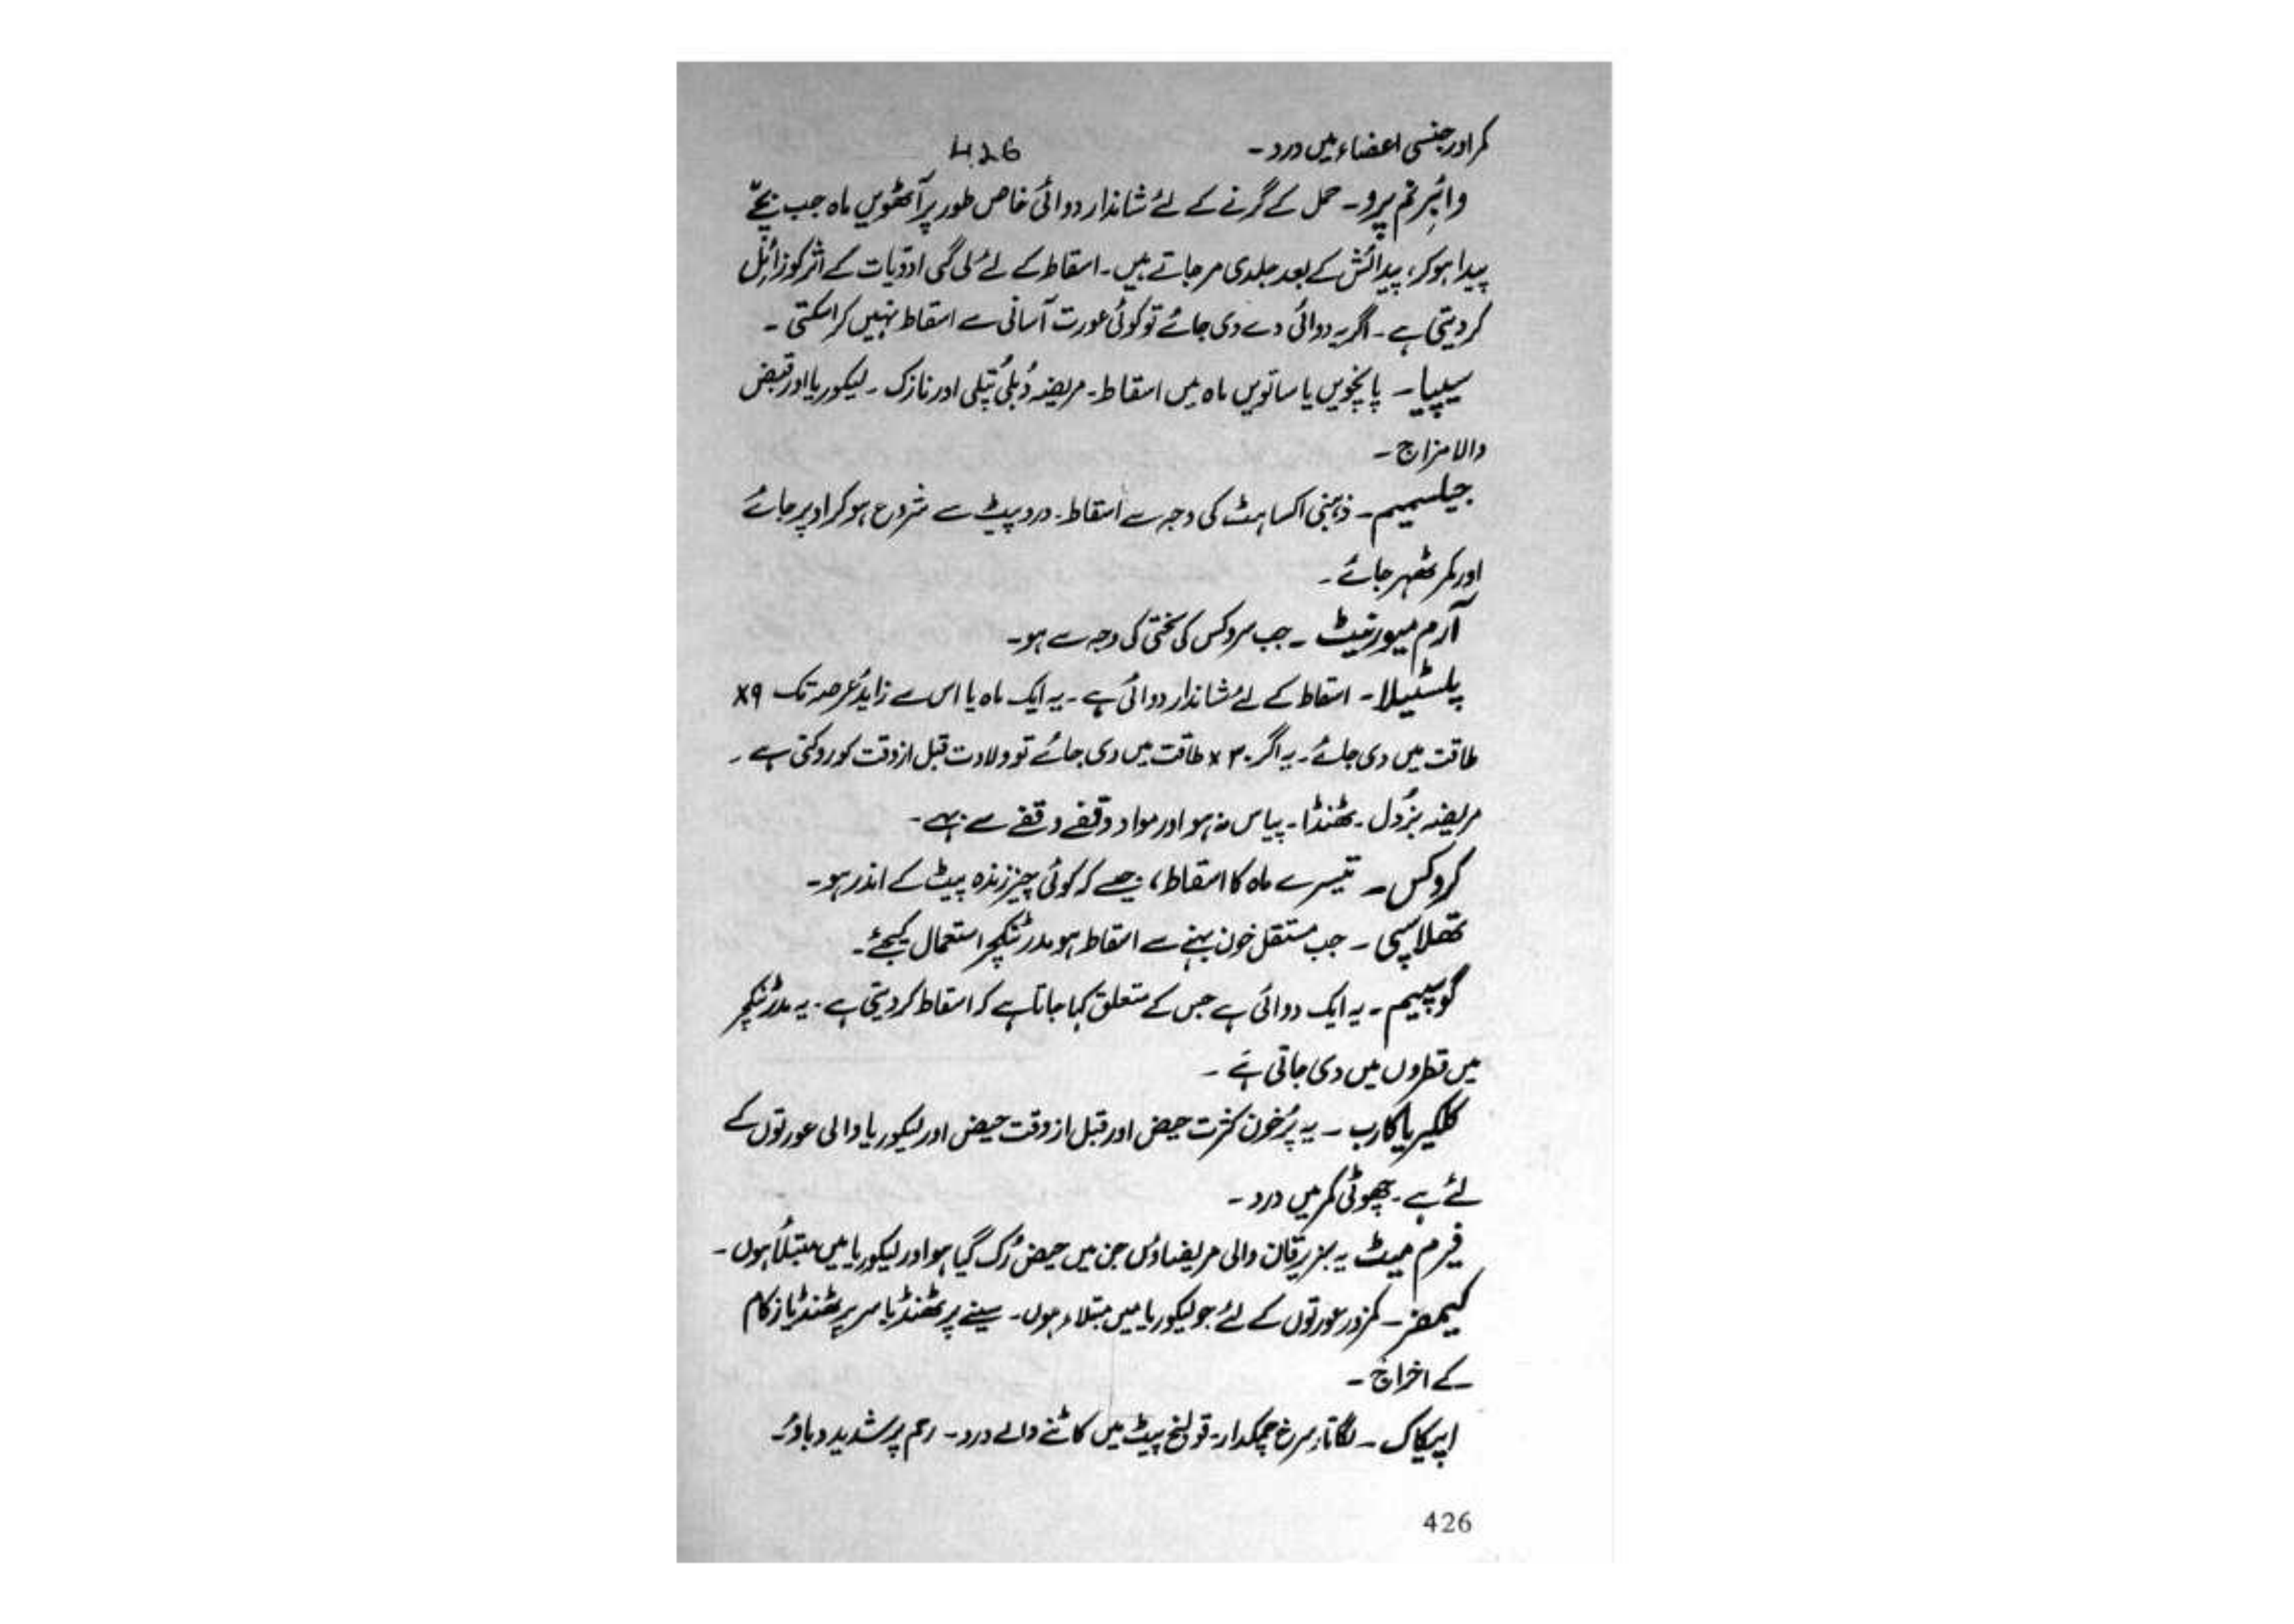 کمر اور جنسی اعضاء میں درد۔
426
وائبرنم پرو۔ حمل کے گرنے کے لئے شاندار دوائی خاص طور پر آٹھویں ماہ جب بچّے
پیدا ہو کر، پیدائش کے بعد جلدی مر جاتے ہیں۔ اسقاط کے لئے لی گئی ادویات کے اثر کو زائل
کر دیتی ہے۔ اگر یہ دوائی دے دی جائے تو کوئی عورت آسانی سے اسقاط نہیں کرا سکتی۔
سیپیا۔ پانچویں یا ساتویں ماہ میں اسقاط۔ مریضہ دُبلی پُتلی اور نازک۔ لیکوریا اور قبض
والا مزاج۔
جیلسمیم۔ ذہنی اکساہٹ کی وجہ سے اسقاط۔ درد پیٹ سے شروع ہو کر اوپر جائے
اور کمر ٹھہر جائے۔
آرم میورنیٹ۔ جب سروکس کی سختی کی وجہ سے ہو۔
پلسٹیلا۔ اسقاط کے لئے شاندار دوائی ہے۔ یہ ایک ماہ یا اس سے زاید عرصہ تک ۹x
طاقت میں دی جائے۔ یہ اگر ۳۰x طاقت میں دی جائے تو ولادت قبل از وقت کو روکتی ہے۔
مریضہ بزُدل۔ ٹھنڈا۔ پیاس نہ ہو اور مواد وقفے وقفے سے بہے۔
کروکس۔ تیسرے ماہ کا اسقاط، جیسے کہ کوئی چیز زندہ پیٹ کے اندر ہو۔
تھلاسپی۔ جب مستقل خون بہنے سے اسقاط ہو مدر ٹنکچر استعمال کیجئے۔
گوسپیم۔ یہ ایک دوائی ہے جس کے متعلق کہا جاتا ہے کہ اسقاط کر دیتی ہے۔ یہ مدر ٹنکچر
میں قطروں میں دی جاتی ہے۔
کلکیریا کارب۔ یہ پُر خون کثرت حیض اور قبل از وقت حیض اور لیکوریا والی عورتوں کے
لئے ہے۔ چھوٹی کمر میں درد۔
فیرم میٹ یہ سبز یرقان والی مریضاؤں جن میں حیض رُک گیا ہو اور لیکوریا میں مبتلا ہوں۔
کیمفر۔ کمزور عورتوں کے لئے جو لیکوریا میں مبتلاء ہوں۔ سینے پر ٹھنڈ یا سر پر ٹھنڈ یا زکام
کے اخراج۔
اپیکاک۔ لگاتار سرخ چمکدار۔ قولنج پیٹ میں کاٹنے والے درد۔ رحم پر شدید دباؤ۔
426